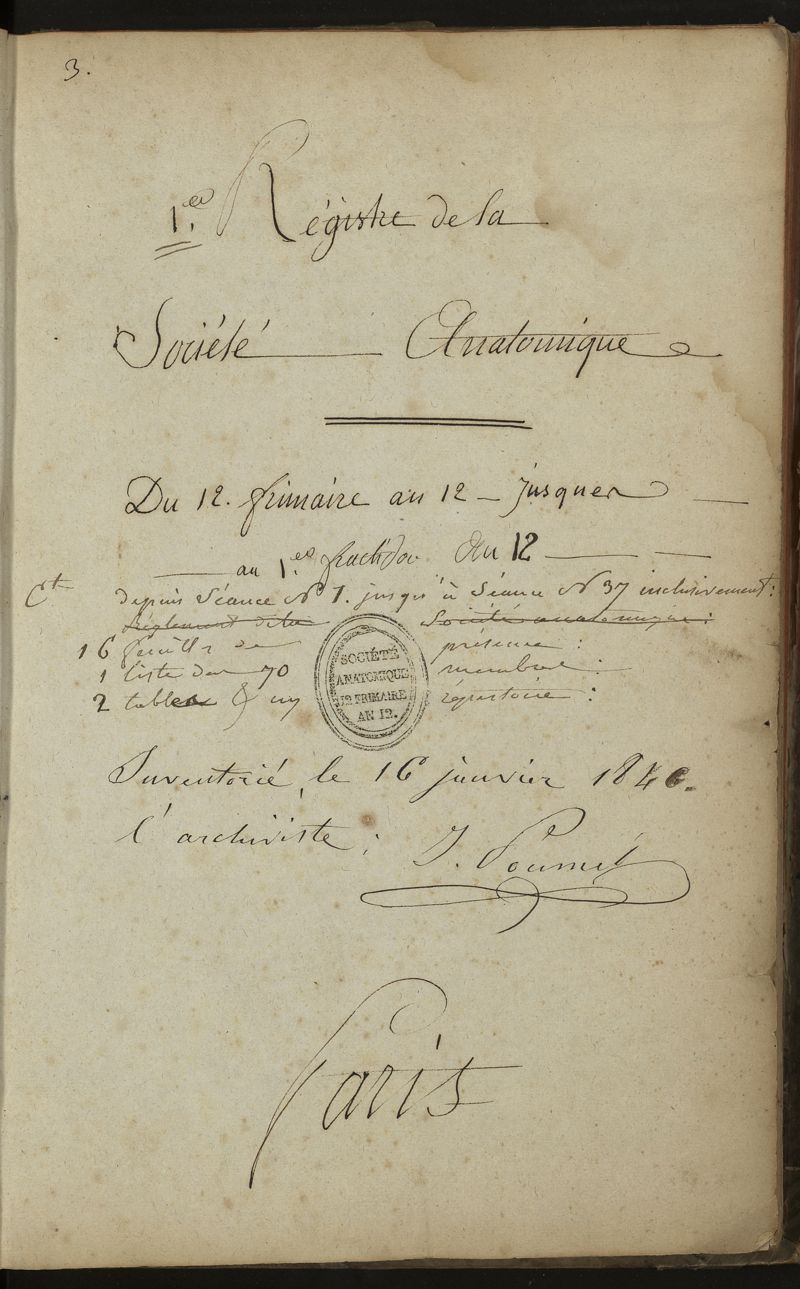 3.
1.er Régistre de la
Société Anatomique
Du 12. frimaire an 12 — jusques
— au 1.er fructidor An 12 — —
Ct depuis Séance N° 1. jusqu'à Séance N° 37 inclusivement:
Réglement de la Société anatomique:
16 feuilles de présence:
1 liste de 70 membres:
2 tables & un répertoire:
SOCIÉTÉ
ANATOMIQUE
12 FRIMAIRE
AN 12.
Inventorié, le 16 janvier 1840.
l'archiviste: J. Poumet
Paris